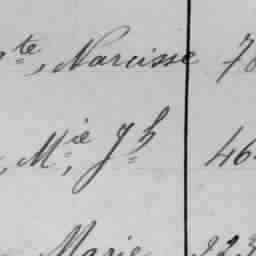 te, Narcisse 7
, M.ie, J.h 46
Marie 223